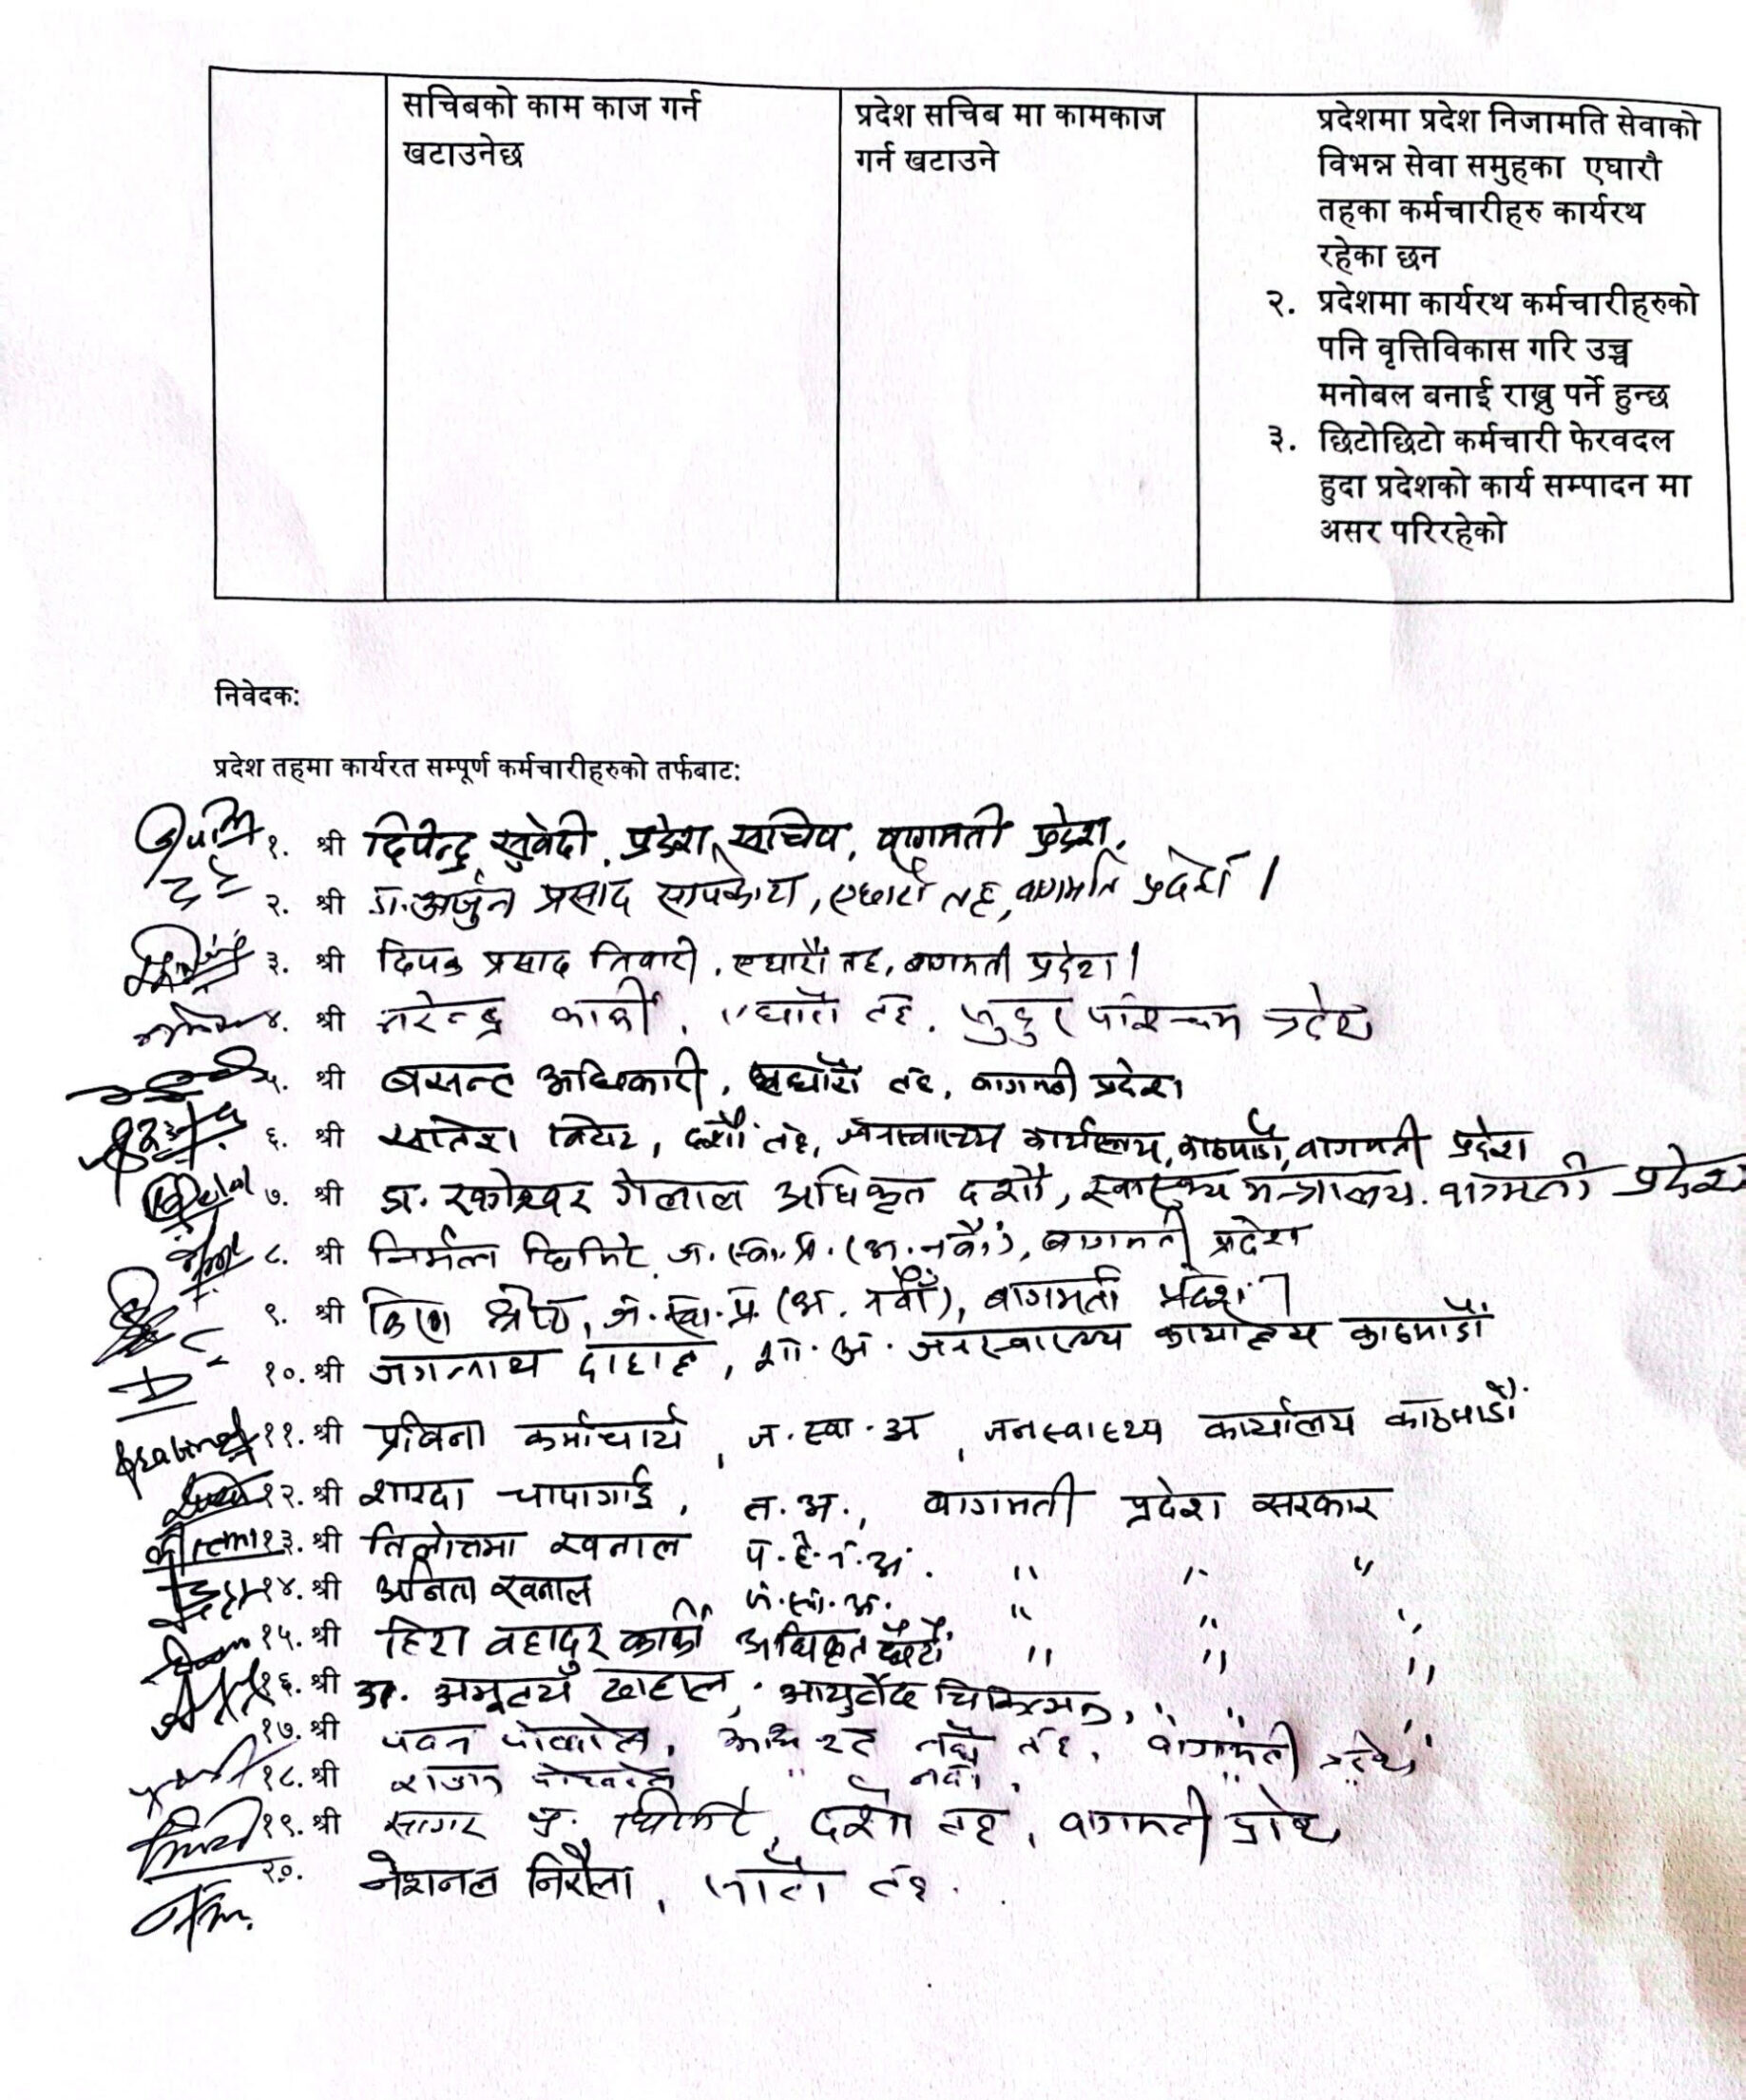 सचिबको काम काज गर्न
खटाउनेछ
प्रदेश सचिब मा कामकाज
गर्न खटाउने
प्रदेशमा प्रदेश निजामति सेवाको
विभन्न सेवा समुहका एघारौ
तहका कर्मचारीहरु कार्यरथ
रहेका छन
२. प्रदेशमा कार्यरथ कर्मचारीहरुको
पनि वृत्तिविकास गरि उच्च
मनोबल बनाई राख्नु पर्ने हुन्छ
३. छिटोछिटो कर्मचारी फेरवदल
हुदा प्रदेशको कार्य सम्पादन मा
असर परिरहेको
निवेदक:
प्रदेश तहमा कार्यरत सम्पूर्ण कर्मचारीहरुको तर्फबाट:
१. श्री दिपेन्द्र सुवेदी, प्रदेश सचिव, बागमती प्रदेश,
२. श्री डा. अर्जुन प्रसाद सापकोटा, एघारौं तह, बागमति प्रदेश ।
३. श्री दिपक प्रसाद तिवारी, एघारौं तह, बागमती प्रदेश ।
४. श्री नरेन्द्र कार्की, एघारौं तह, सुदुर पश्चिम प्रदेश
५. श्री बसन्त अधिकारी, एघारौं तह, बागमती प्रदेश
६. श्री दशौं तह, जनस्वास्थ्य कार्यालय, काठमाडौं, बागमती प्रदेश
७. श्री डा. गेलाल अधिकृत दशौं, स्वास्थ्य मन्त्रालय, बागमती प्रदेश
८. श्री निर्मला घिमिरे, ज.स्वा.प्र. (अ. नवौं), बागमती प्रदेश
९. श्री श्रेष्ठ, ज.स्वा.प्र. (अ. नवौं), बागमती प्रदेश
१०. श्री जगन्नाथ दाहाल, शा.अ. जनस्वास्थ्य कार्यालय काठमाडौं
११. श्री प्रबिना कर्माचार्य, ज.स्वा.अ, जनस्वास्थ्य कार्यालय काठमाडौं
१२. श्री शारदा चापागाई, न.अ., बागमती प्रदेश सरकार
१३. श्री तिलोत्तमा खनाल प.हे.न.अ. " " "
१४. श्री अनिता खनाल ज.स्वा.अ. " " "
१५. श्री हिरा बहादुर कार्की अधिकृत छैटौं " " "
१६. श्री डा. दाहाल, आयुर्वेद चिकित्सक, " " "
१७. श्री पवन पोखरेल, तह, बागमती प्रदेश
१८. श्री पोखरेल " नवौं, " "
१९. श्री सागर प्र. घिमिरे, दशौं तह, बागमती प्रदेश
२०. नेशनल निरौला, तह.